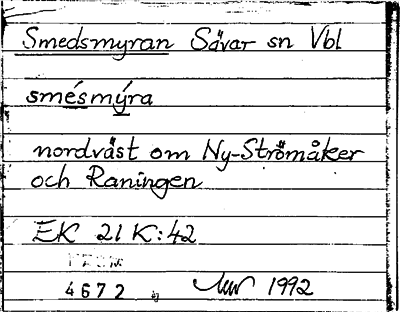 Smedsmyran Sävar sn Vbl
smésmýra
nordväst om Ny-Strömåker
och Raningen
EK 21 K:42
4672
1992